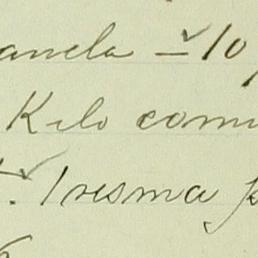 anela - 10
Kilo comi
1 resma p